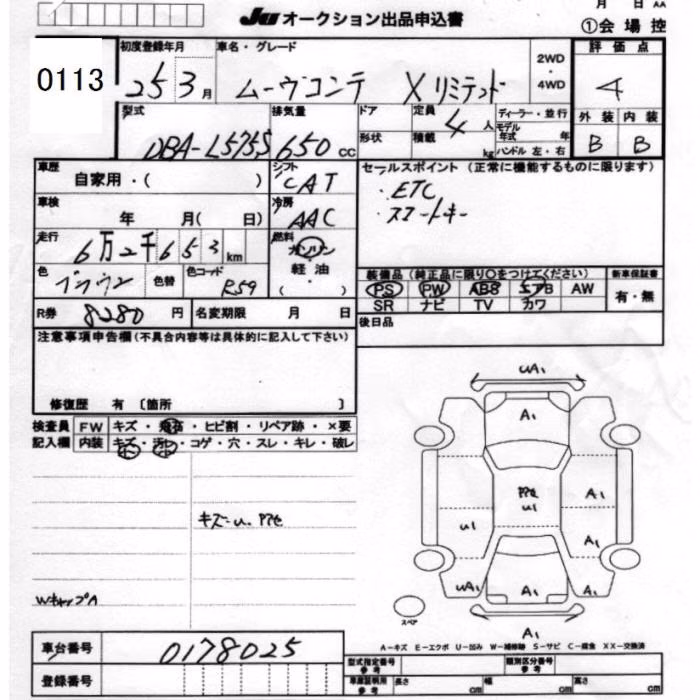 月 日 AA
JU オークション出品申込書
①会場控
0113
初度登録年月 車名・グレード 2WD・4WD 評価点
25 3月 ムーヴコンテ Xリミテッド 4
型式 排気量 ドア 定員 4人 ディーラー・並行 外装 内装
DBA-L575S 650cc 形状 積載 kg モデル年式 年 ハンドル 左・右 B B
車歴 シフト セールスポイント (正常に機能するものに限ります)
自家用・( ) CAT ・ETC
車検 冷房 ・スマートキー
年 月( 日) AAC
走行 燃料
6万2千653km ガソリン
軽油
・( )
色 ブラウン 色替 色コード R59
装備品(純正品に限り○をつけてください) 新車保証書
PS PW AB8 エアB AW 有・無
SR ナビ TV カワ
R券 8280円 名変期限 月 日
後日品
注意事項申告欄(不具合内容等は具体的に記入して下さい)
修復歴 有 〔箇所 〕
検査員 FW キズ・飛石・ヒビ割・リペア跡・×要
記入欄 内装 キズ・汚レ・コゲ・穴・スレ・キレ・破レ
キズ-u. アセ
WキャップA
UA1
A1
アセ
U1
A1
U1
A1
UA1
A1
A1
A1
スペア
A-キズ E-エクボ U-凹み W-補修跡 S-サビ C-腐食 XX-交換済
車台番号 0178025
登録番号
型式指定番号 参考 類別区分番号 参考
車庫証明用 参考 長さ cm 幅 cm 高さ cm